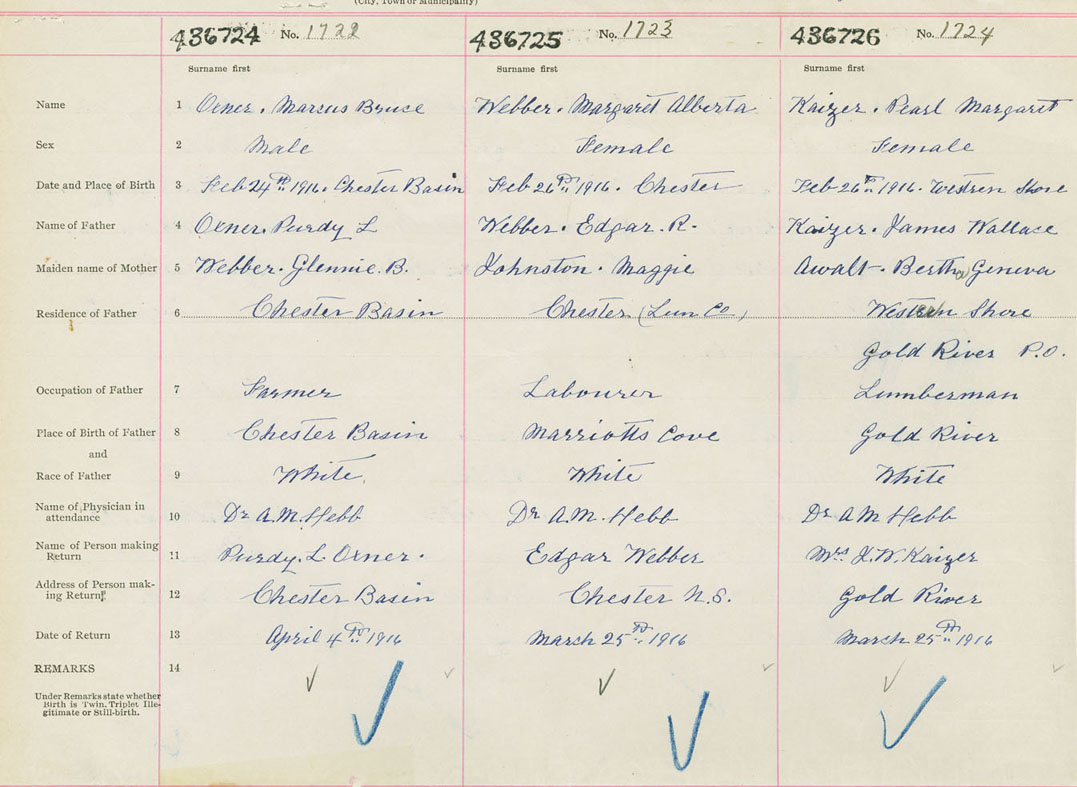 (City, Town or Municipality)
436724 No. 1722 436725 No. 1723 436726 No. 1724
Surname first Surname first Surname first
Name 1 Oxner. Marcus Bruce Webber. Margaret Alberta Kaizer. Pearl Margaret
Sex 2 Male Female Female
Date and Place of Birth 3 Feb 24th 1916. Chester Basin Feb 26th 1916. Chester Feb 26th 1916. Westren Shore
Name of Father 4 Oxner. Purdy L Webber. Edgar. R. Kaizer. James Wallace
Maiden name of Mother 5 Webber. Glennie. B. Johnston. Maggie Awalt. Bertha Geneva
Residence of Father 6 Chester Basin Chester (Lun Co.) Western Shore
Gold River P.O.
Occupation of Father 7 Farmer Labourer Lumberman
Place of Birth of Father 8 Chester Basin Marriotts Cove Gold River
and
Race of Father 9 White White White
Name of Physician in
attendance 10 Dr A.M. Hebb Dr A.M. Hebb Dr A M Hebb
Name of Person making
Return 11 Purdy. L. Oxner. Edgar Webber Mrs J. W. Kaizer
Address of Person mak-
ing Return 12 Chester Basin Chester N.S. Gold River
Date of Return 13 April 4th 1916 March 25th 1916 March 25th 1916
REMARKS 14
Under Remarks state whether
Birth is Twin, Triplet Ille-
gitimate or Still-birth.